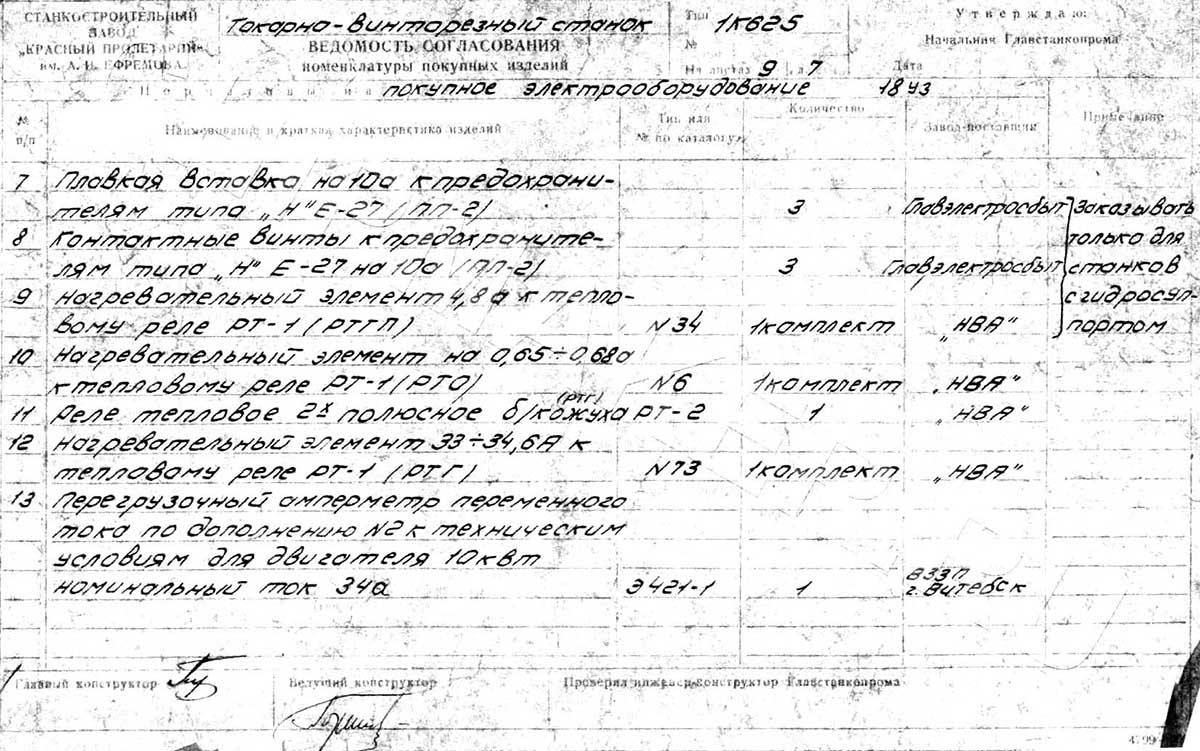 СТАНКОСТРОИТЕЛЬНЫЙ
ЗАВОД
„КРАСНЫЙ ПРОЛЕТАРИЙ"
им. А. И. ЕФРЕМОВА
Токарно-винторезный станок
ВЕДОМОСТЬ СОГЛАСОВАНИЯ
номенклатуры покупных изделий
Тип 1К625
№
На листах 9 л 7
Утверждаю:
Начальник Главстанкопрома
Дата
на покупное электрооборудование 220/380
№ п/п
Наименование и краткая характеристика изделий
Тип или № по каталогу
Количество
Завод-поставщик
Примечание
7 Плавкая вставка на 10а к предохрани-
телям типа „Н" Е-27 (ПП-2) 3 Главэлектросбыт
8 Контактные винты к предохраните-
лям типа „Н" Е-27 на 10а (ПП-2) 3 Главэлектросбыт
Заказывать
только для
станков
с гидросуп-
портом
9 Нагревательный элемент 4,8а к тепло-
вому реле РТ-1 (РТГП) N34 1комплект „НВА"
10 Нагревательный элемент на 0,65÷0,68а
к тепловому реле РТ-1 (РТО) N6 1комплект „НВА"
11 Реле тепловое 2х полюсное б/кожуха (РТГ) РТ-2 1 „НВА"
12 Нагревательный элемент 33÷34,6А к
тепловому реле РТ-1 (РТГ) N73 1комплект „НВА"
13 Перегрузочный амперметр переменного
тока по дополнению N2 к техническим
условиям для двигателя 10квт
номинальный ток 34а Э421-1 1 ВЗЭП
г. Витебск
Главный конструктор
Ведущий конструктор
Проверил инженер-конструктор Главстанкопрома